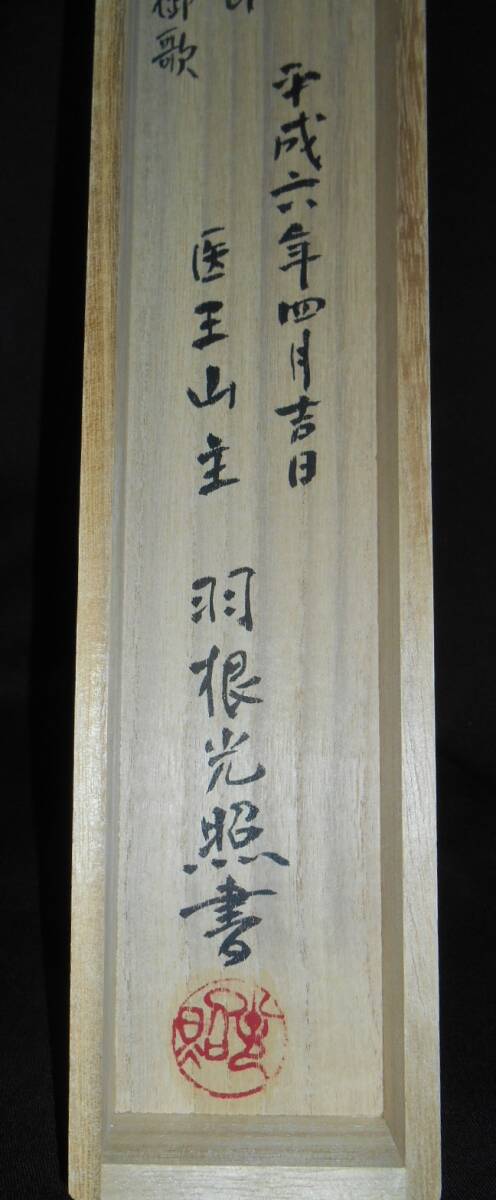 平成六年四月吉日
医王山主 羽根光照書
御歌
光照